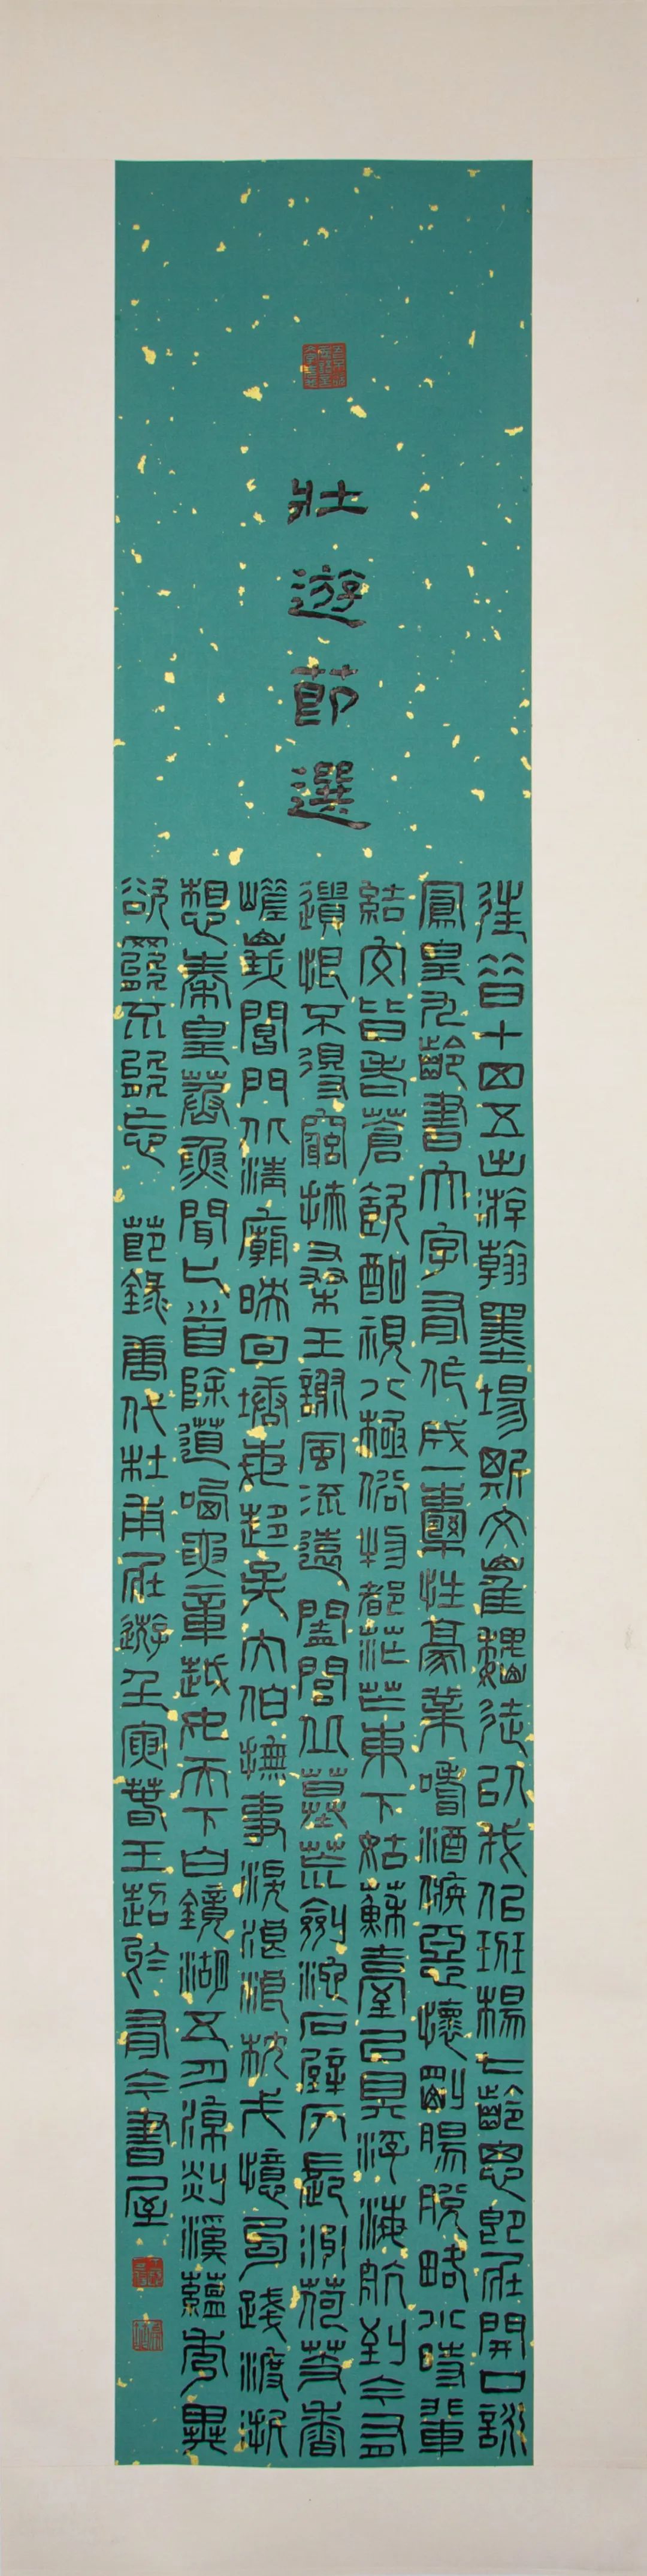 壯遊節選
往昔十四五出游翰墨場斯文崔魏徒以我似班楊七齡思即壯開口詠
鳳皇九齡書大字有作成一囊性豪業嗜酒嫉惡懷剛腸脫略小時輩
結交皆老蒼飲酣視八極俗物都茫茫東下姑蘇臺已具浮海航到今有
遺恨不得窮扶桑王謝風流遠闔閭丘墓荒劍池石壁仄長洲荷芰香
嵯峨閶門北清廟映回塘每趨吳太伯撫事淚浪浪枕戈憶勾踐渡浙
想秦皇蒸魚聞匕首除道哂要章越女天下白鏡湖五月涼剡溪蘊秀異
欲罷不能忘 節錄唐代杜甫壯遊壬寅春王超於有今書屋